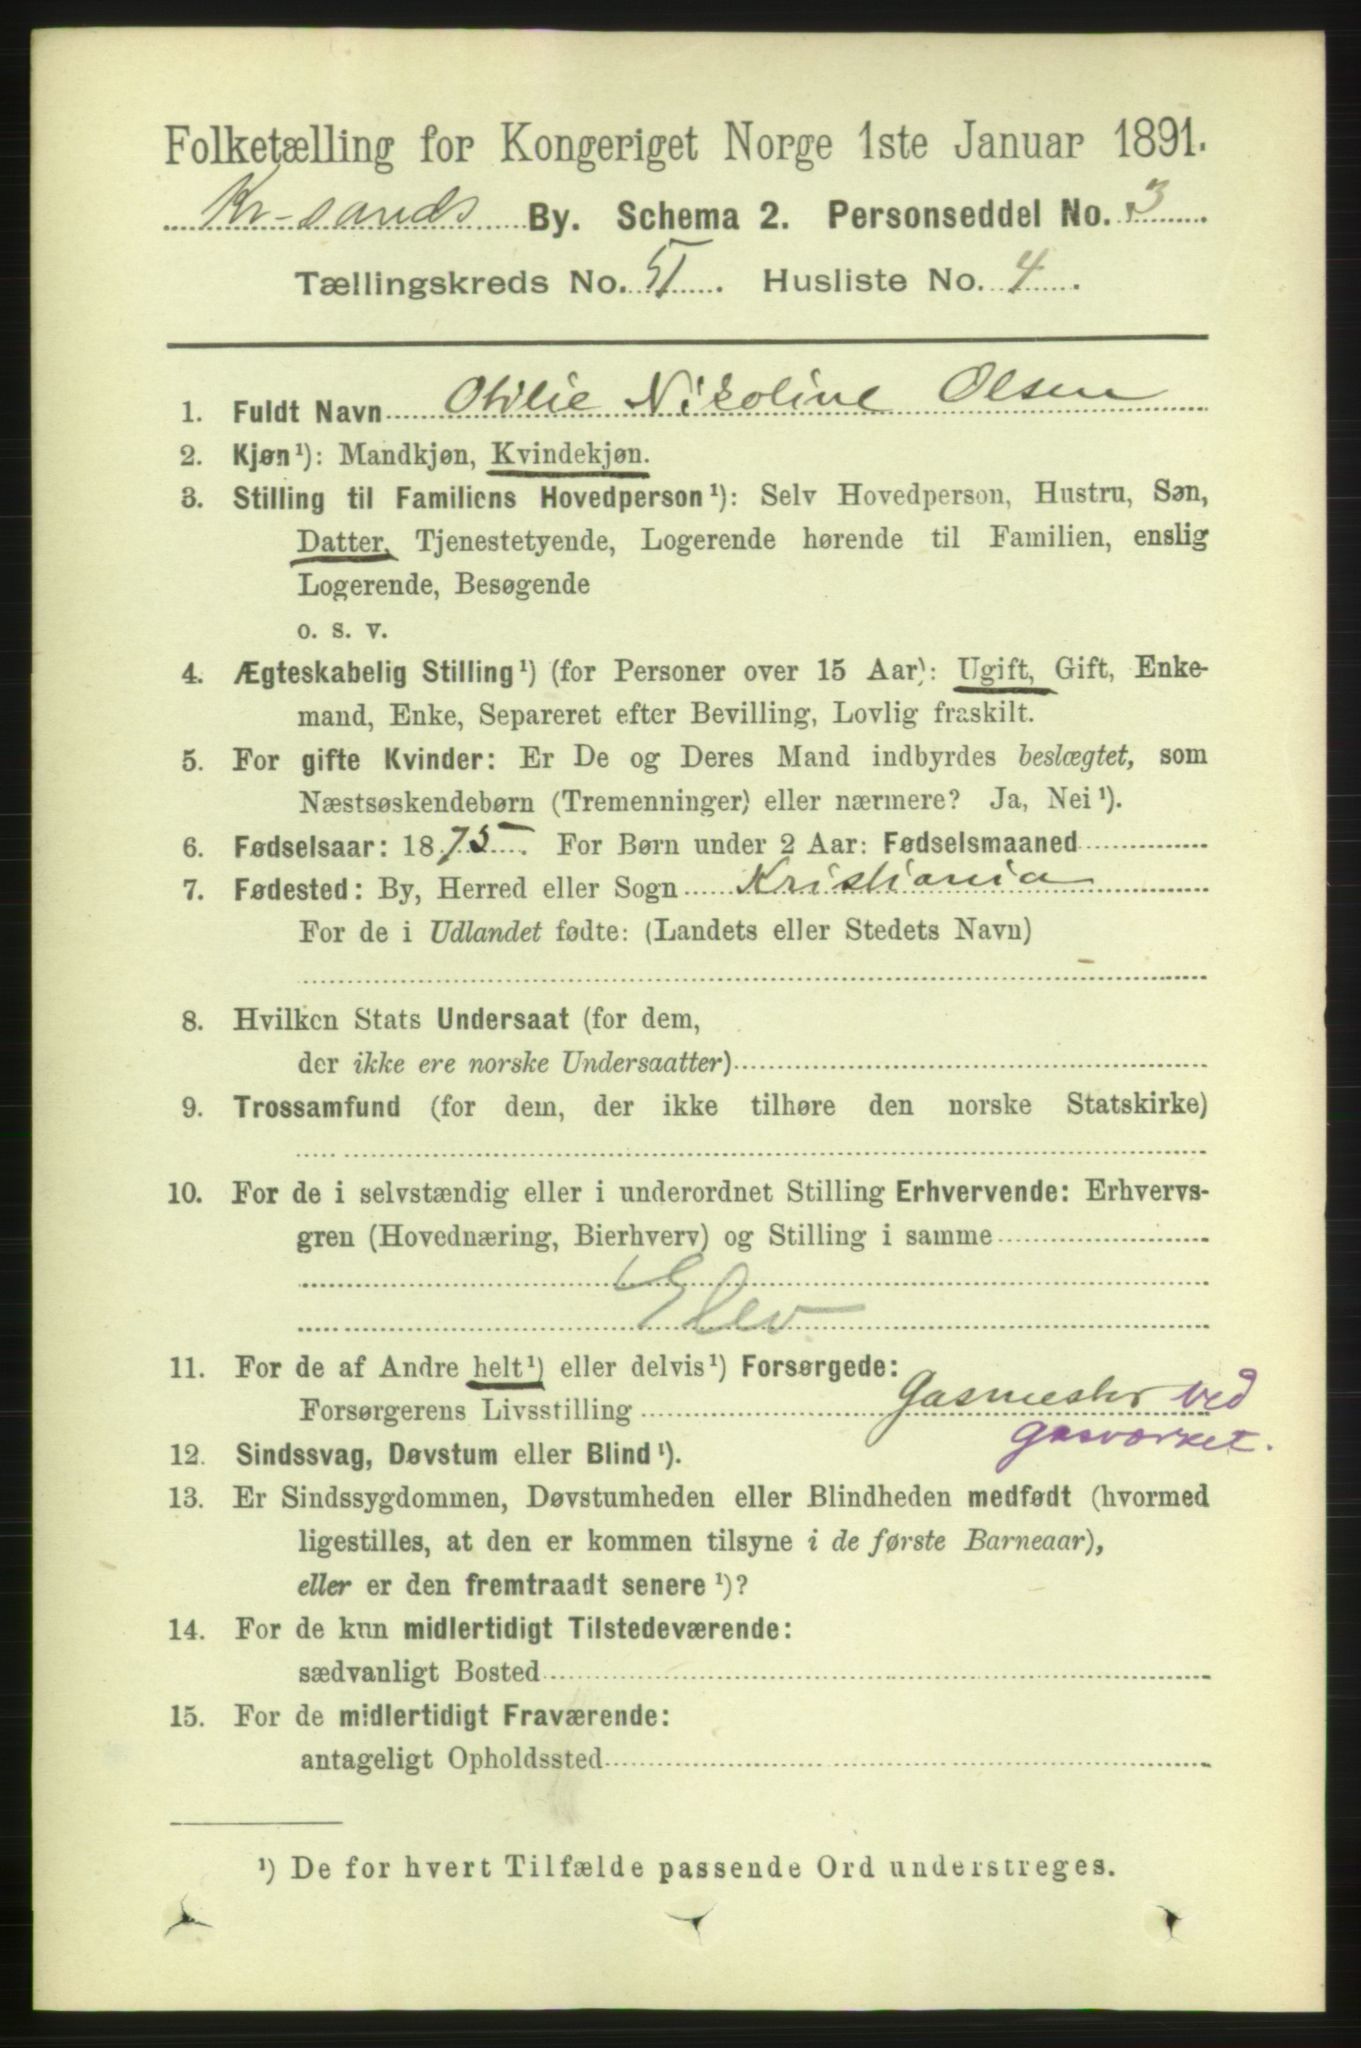 Folketælling for Kongeriget Norge 1ste Januar 1891.
Kr-sands By. Schema 2. Personseddel No. 3
Tællingskreds No. 5. Husliste No. 4.
1. Fuldt Navn Otilie Nikoline Olsen
2. Kjøn¹): Mandkjøn, Kvindekjøn.
3. Stilling til Familiens Hovedperson¹): Selv Hovedperson, Hustru, Søn,
Datter, Tjenestetyende, Logerende hørende til Familien, enslig
Logerende, Besøgende
o. s. v.
4. Ægteskabelig Stilling¹) (for Personer over 15 Aar): Ugift, Gift, Enke-
mand, Enke, Separeret efter Bevilling, Lovlig fraskilt.
5. For gifte Kvinder: Er De og Deres Mand indbyrdes beslægtet, som
Næstsøskendebørn (Tremenninger) eller nærmere? Ja, Nei¹).
6. Fødselsaar: 1875. For Børn under 2 Aar: Fødselsmaaned
7. Fødested: By, Herred eller Sogn Kristiania
For de i Udlandet fødte: (Landets eller Stedets Navn)
8. Hvilken Stats Undersaat (for dem,
der ikke ere norske Undersaatter)
9. Trossamfund (for dem, der ikke tilhøre den norske Statskirke)
10. For de i selvstændig eller i underordnet Stilling Erhvervende: Erhvervs-
gren (Hovednæring, Bierhverv) og Stilling i samme
Elev
11. For de af Andre helt¹) eller delvis¹) Forsørgede:
Forsørgerens Livsstilling Gasmester ved
gasværket.
12. Sindssvag, Døvstum eller Blind¹).
13. Er Sindssygdommen, Døvstumheden eller Blindheden medfødt (hvormed
ligestilles, at den er kommen tilsyne i de første Barneaar),
eller er den fremtraadt senere¹)?
14. For de kun midlertidigt Tilstedeværende:
sædvanligt Bosted
15. For de midlertidigt Fraværende:
antageligt Opholdssted
¹) De for hvert Tilfælde passende Ord understreges.